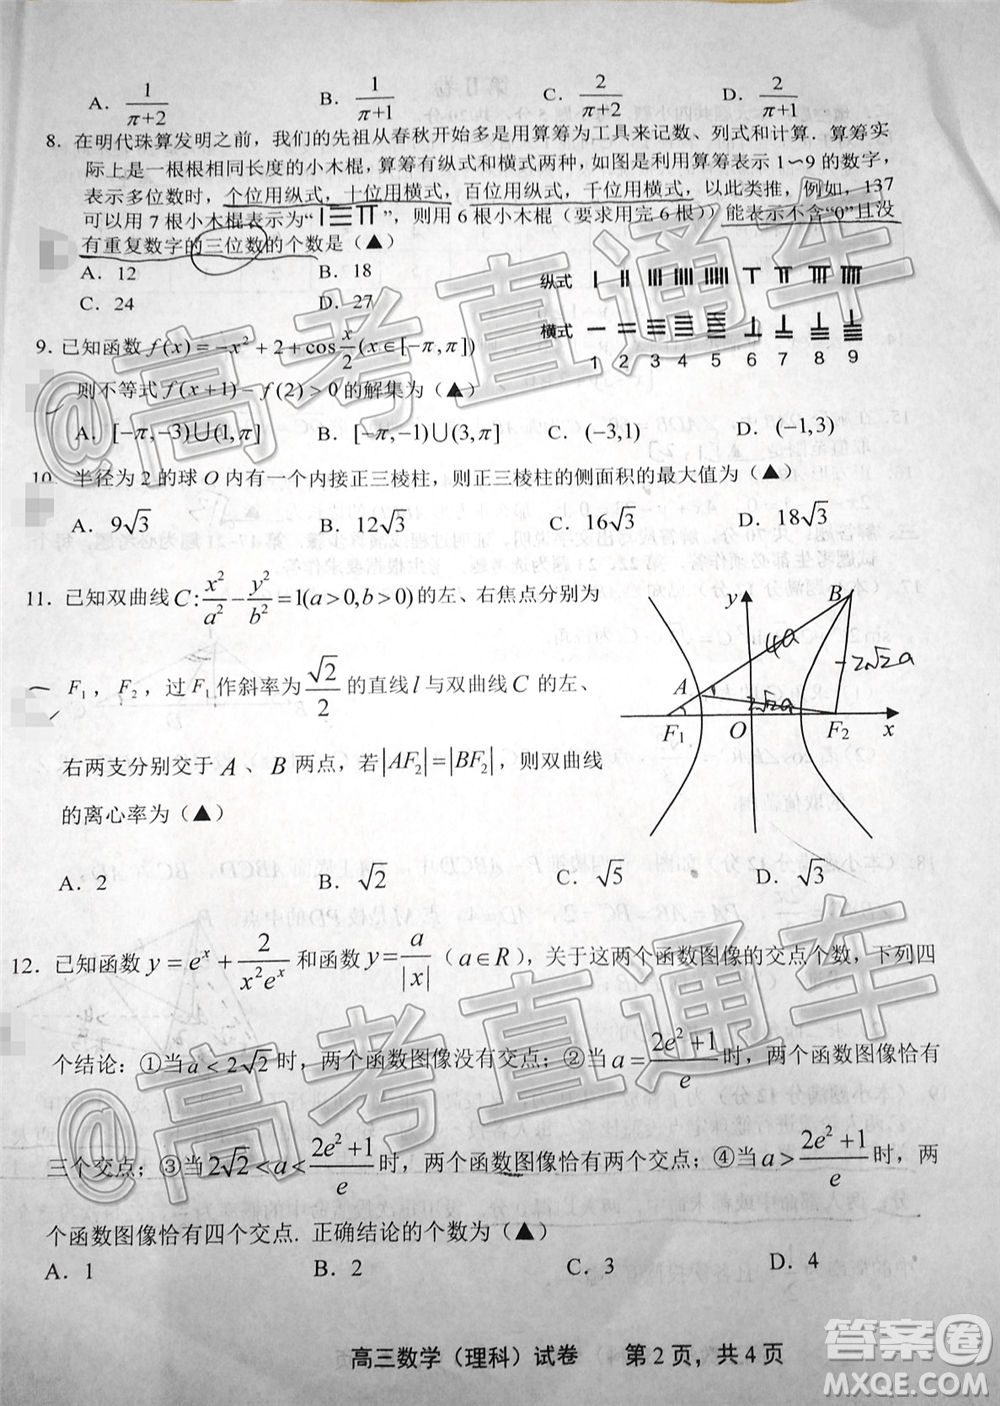 A. \frac{1}{π+2} B. \frac{1}{π+1} C. \frac{2}{π+2} D. \frac{2}{π+1}
8. 在明代珠算发明之前，我们的先祖从春秋开始多是用算筹为工具来记数、列式和计算．算筹实
际上是一根根相同长度的小木棍，算筹有纵式和横式两种，如图是利用算筹表示 1～9 的数字，
表示多位数时，个位用纵式，十位用横式，百位用纵式，千位用横式，以此类推，例如，137
可以用 7 根小木棍表示为“𝍩𝍢𝍯”，则用 6 根小木棍（要求用完 6 根）能表示不含“0”且没
有重复数字的三位数的个数是（▲）
A. 12 B. 18
C. 24 D. 27
纵式
横式
1 2 3 4 5 6 7 8 9
9. 已知函数 f(x)=-x²+2+cos\frac{x}{2}(x∈[-π,π])
则不等式 f(x+1)-f(2)>0 的解集为（▲）
A. [-π,-3)∪(1,π] B. [-π,-1)∪(3,π] C. (-3,1) D. (-1,3)
10. 半径为 2 的球 O 内有一个内接正三棱柱，则正三棱柱的侧面积的最大值为（▲）
A. 9√3 B. 12√3 C. 16√3 D. 18√3
11. 已知双曲线 C:\frac{x²}{a²}-\frac{y²}{b²}=1(a>0,b>0) 的左、右焦点分别为
F₁，F₂，过 F₁ 作斜率为 \frac{√2}{2} 的直线 l 与双曲线 C 的左、
右两支分别交于 A 、B 两点，若 |AF₂|=|BF₂|，则双曲线
的离心率为（▲）
y B
4a
2√2a
A
2√2a
F₁ O F₂ x
A. 2 B. √2 C. √5 D. √3
12. 已知函数 y=eˣ+\frac{2}{x²eˣ} 和函数 y=\frac{a}{|x|}（a∈R），关于这两个函数图像的交点个数，下列四
个结论：①当 a<2√2 时，两个函数图像没有交点；②当 a=\frac{2e²+1}{e} 时，两个函数图像恰有
三个交点；③当 2√2<a<\frac{2e²+1}{e} 时，两个函数图像恰有两个交点；④当 a>\frac{2e²+1}{e} 时，两
个函数图像恰有四个交点. 正确结论的个数为（▲）
A. 1 B. 2 C. 3 D. 4
高三数学（理科）试卷 第 2 页，共 4 页
@高考直通车
@高考直通车
答案圈
MXQE.COM